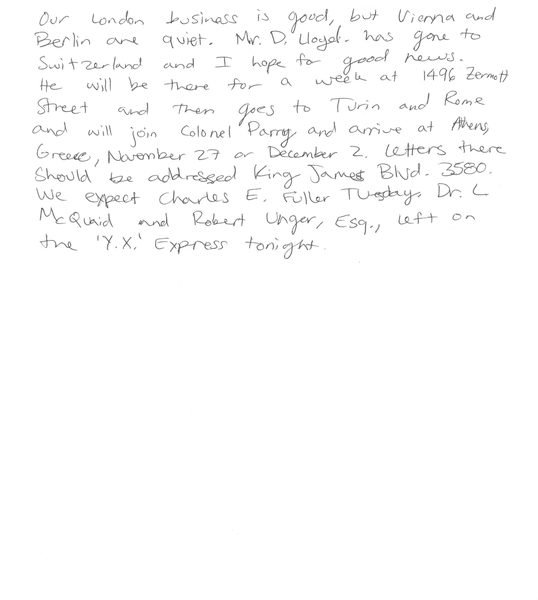 Our London business is good, but Vienna and
Berlin are quiet. Mr. D. Lloyd. has gone to
Switzerland and I hope for good news.
He will be there for a week at 1496 Zermott
Street and then goes to Turin and Rome
and will join Colonel Parry and arrive at Athens,
Greece, November 27 or December 2. Letters there
should be addressed King James Blvd. 3580.
We expect Charles E. Fuller Tuesday. Dr. L
McQuaid and Robert Unger, Esq., left on
the 'Y.X.' Express tonight.